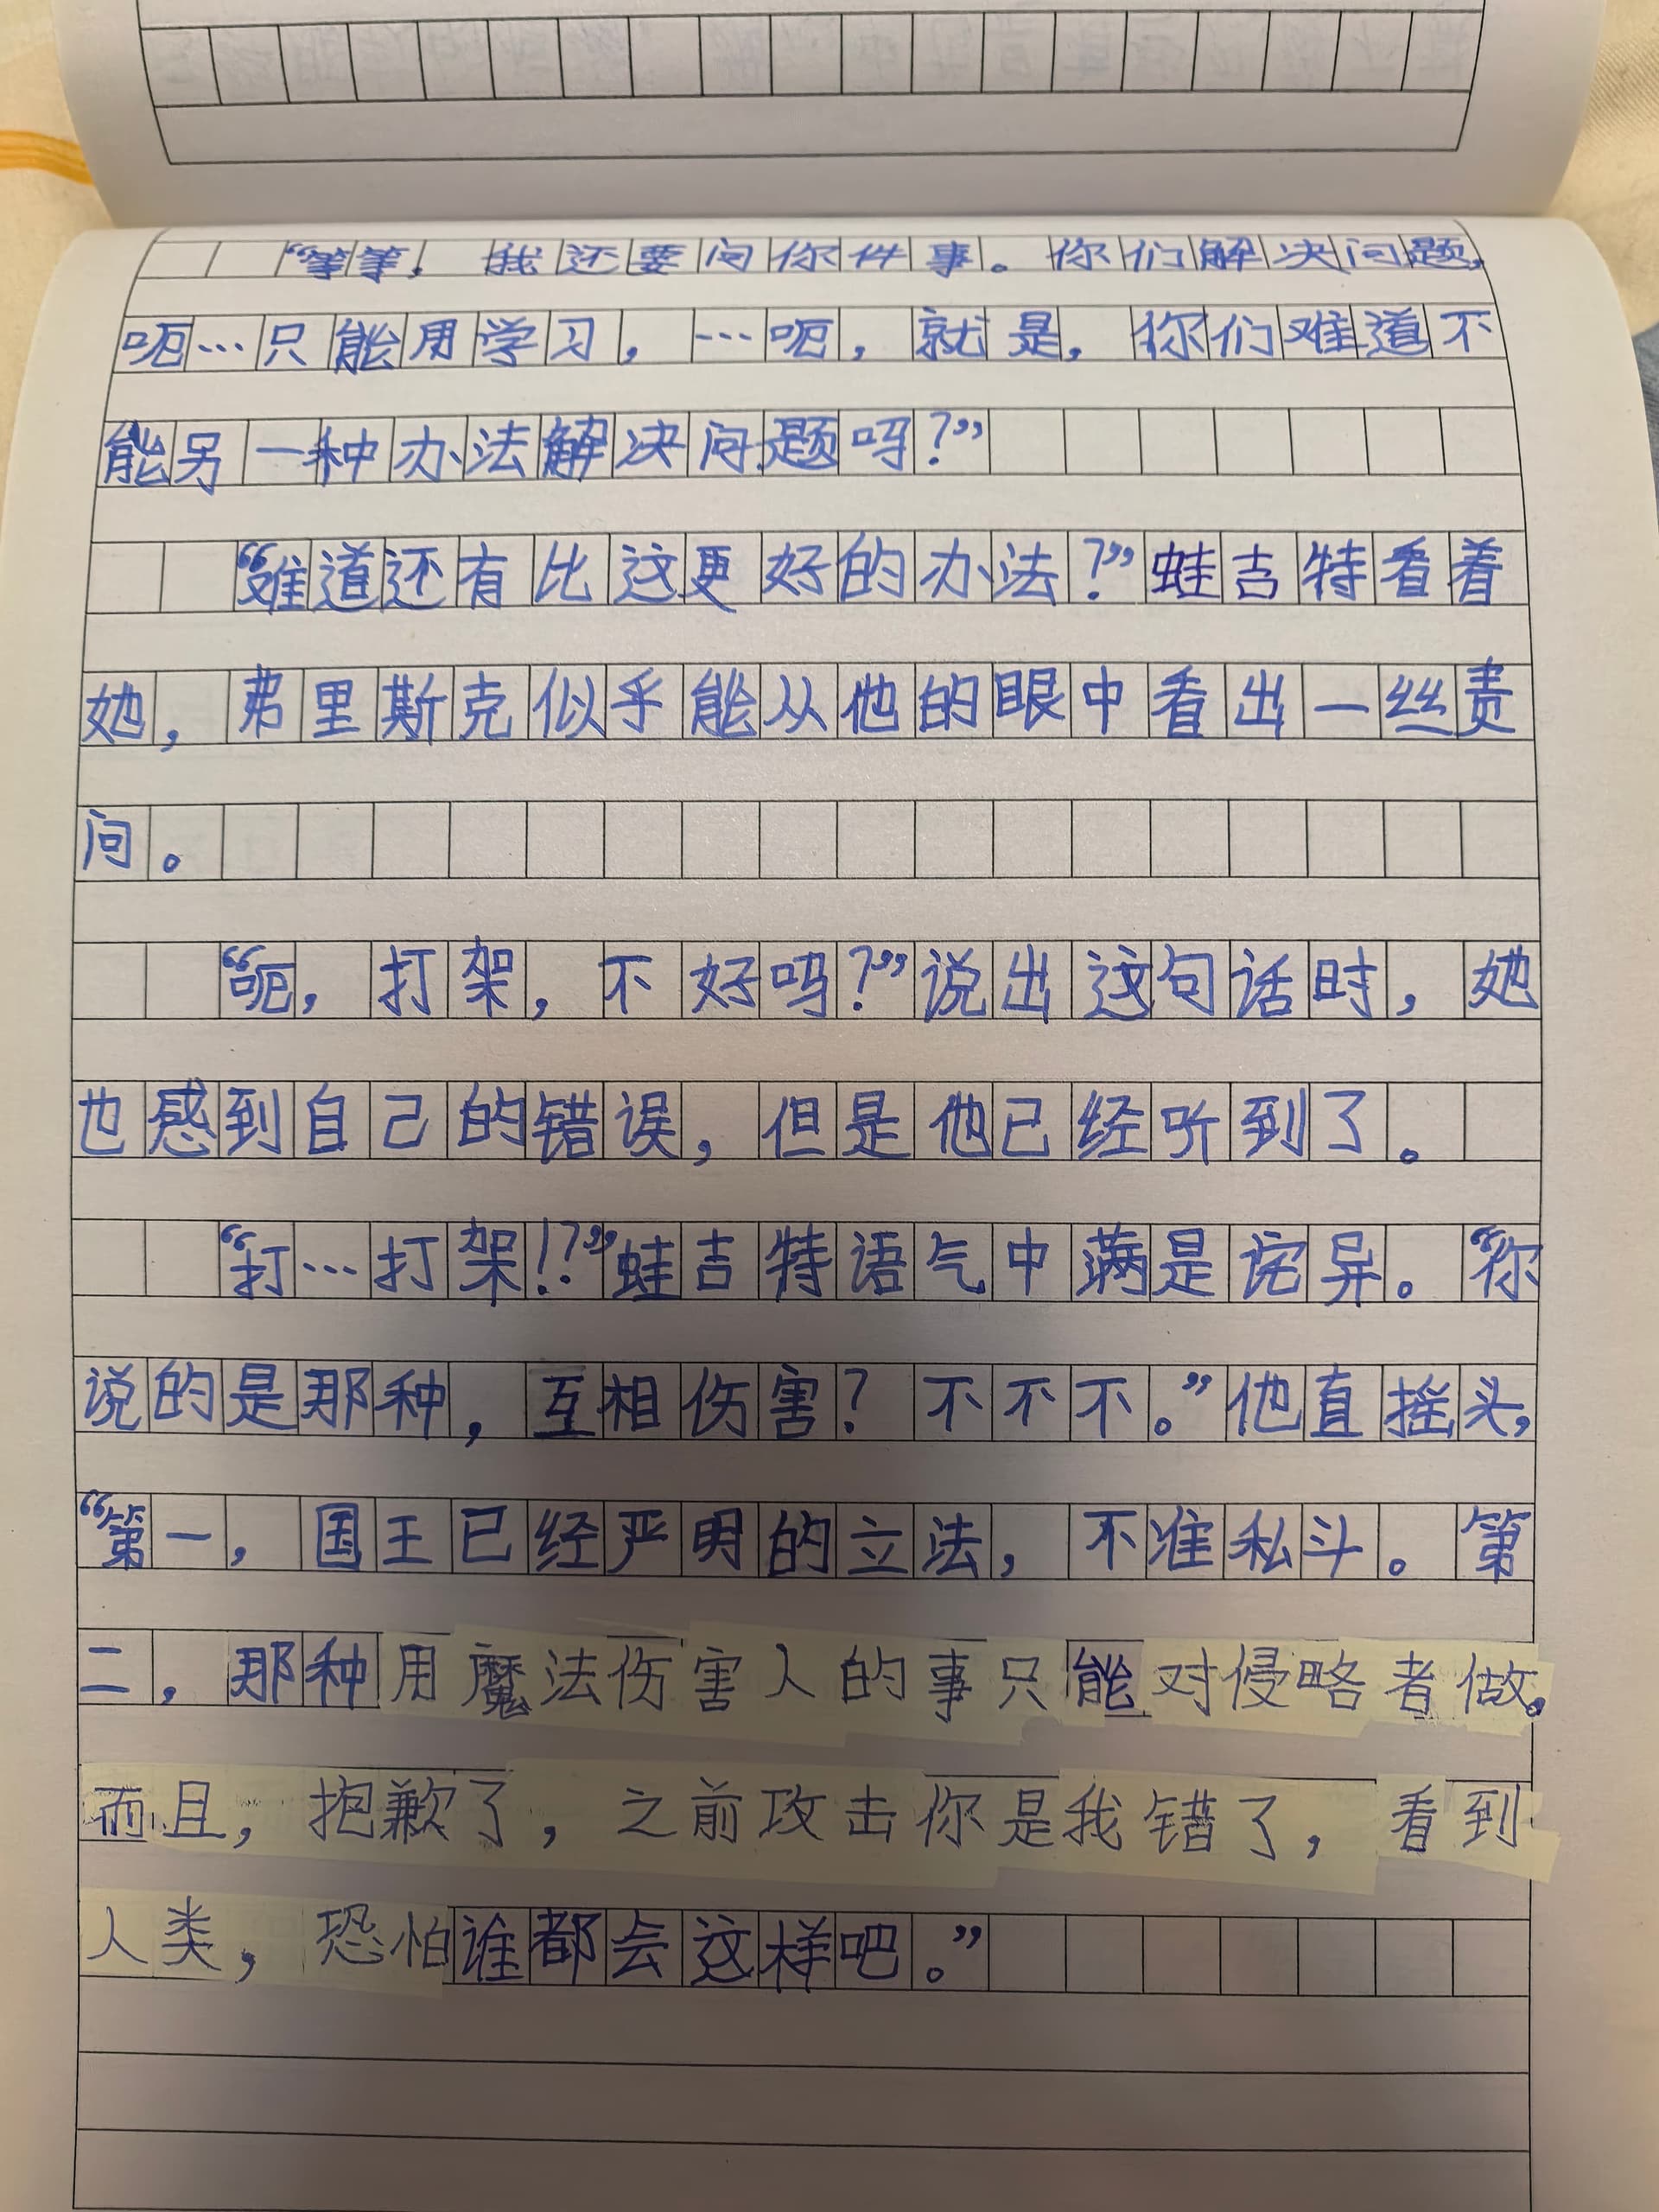 “等等！我还要问你件事。你们解决问题，
呃…只能用学习，…呃，就是，你们难道不
能另一种办法解决问题吗？”
“难道还有比这更好的办法？”蛙吉特看着
她，弗里斯克似乎能从他的眼中看出一丝责
问。
“呃，打架，不好吗？”说出这句话时，她
也感到自己的错误，但是他已经听到了。
“打…打架！？”蛙吉特语气中满是诧异。“你
说的是那种，互相伤害？不不不。”他直摇头，
“第一，国王已经严明的立法，不准私斗。第
二，那种用魔法伤害人的事只能对侵略者做。
而且，抱歉了，之前攻击你是我错了，看到
人类，恐怕谁都会这样吧。”